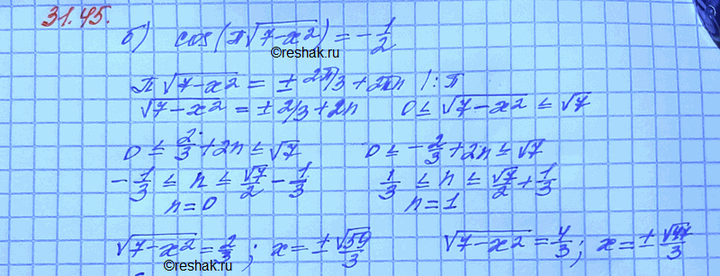 31.45.
б) cos(π√(7-x²)) = -1/2
π√(7-x²) = ± 2π/3 + 2πn /:π
√(7-x²) = ± 2/3 + 2n   0 ≤ √(7-x²) ≤ √7
0 ≤ 2/3 + 2n ≤ √7   0 ≤ -2/3 + 2n ≤ √7
-1/3 ≤ n ≤ √7/2 - 1/3   1/3 ≤ n ≤ √7/2 + 1/3
n = 0   n = 1
√(7-x²) = 2/3; x = ± √59/3   √(7-x²) = 4/3; x = ± √47/3
©Reshak.ru
©Reshak.ru